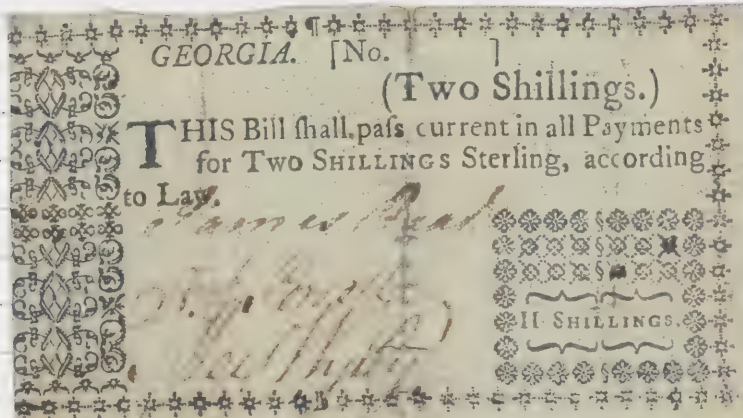 GEORGIA. [No. ]
(Two Shillings.)
THIS Bill ſhall paſs current in all Payments
for Two SHILLINGS Sterling, according
to Law.
James Read
II SHILLINGS.